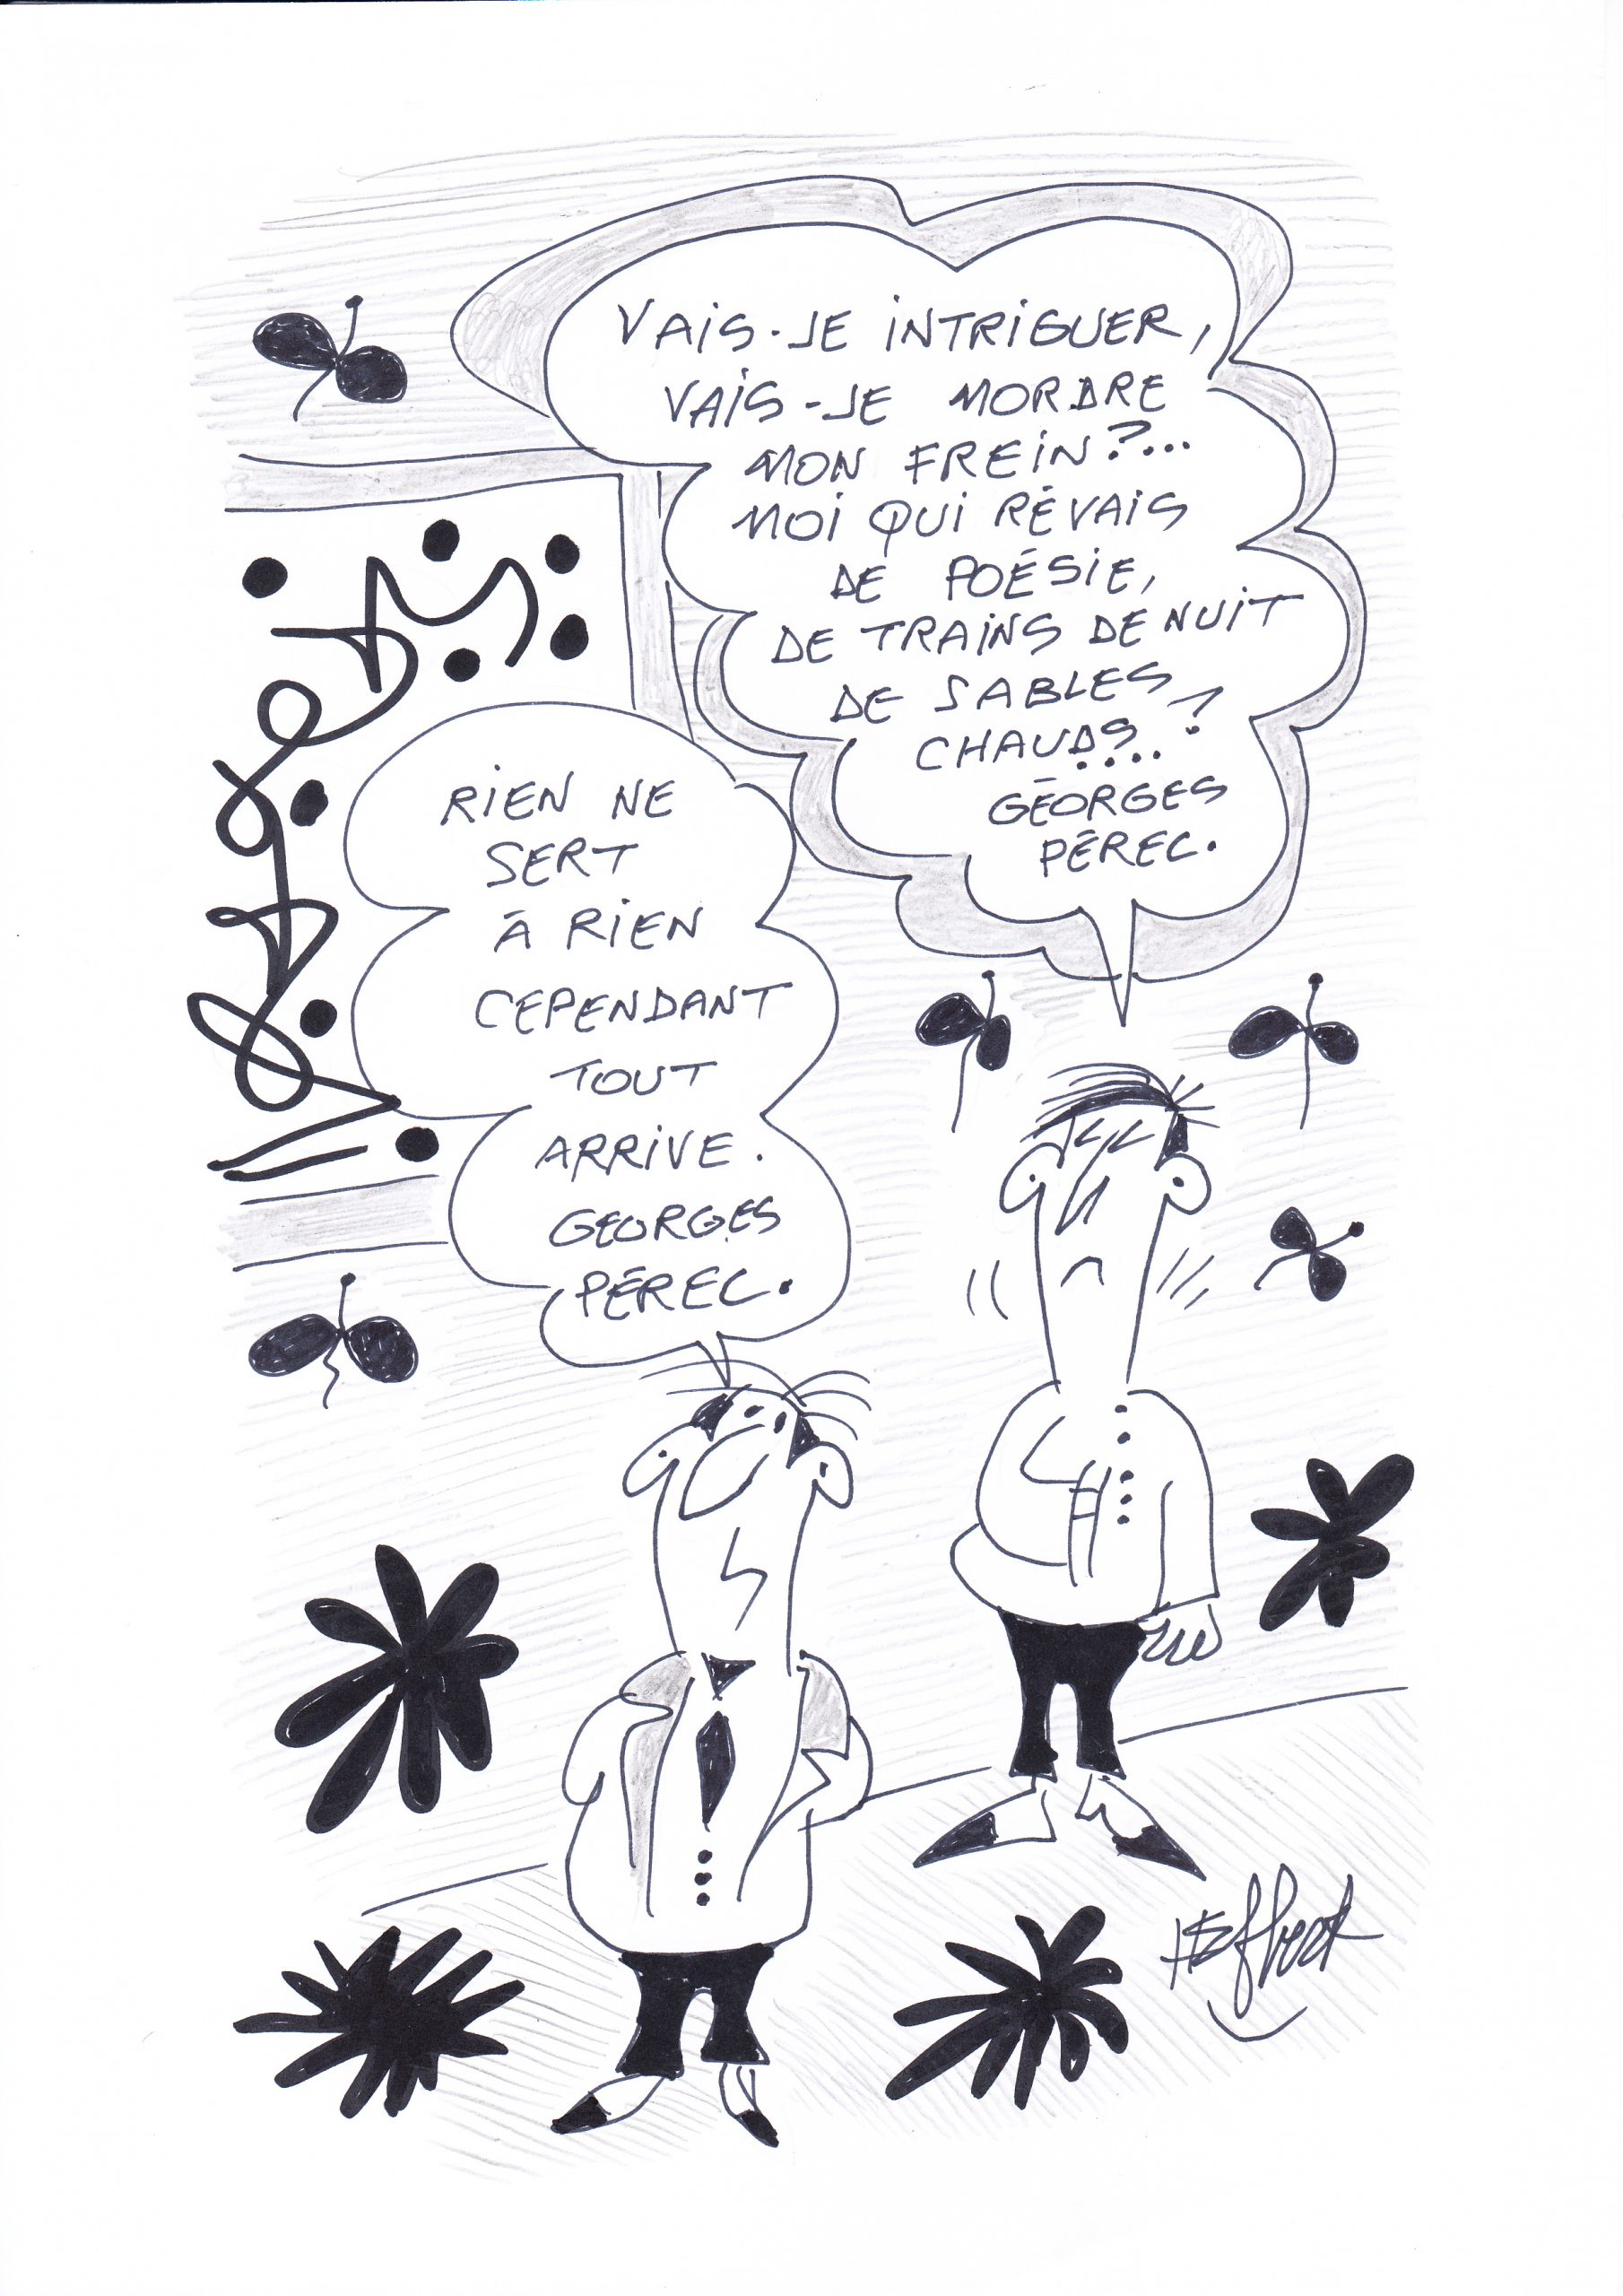 VAIS-JE INTRIGUER,
VAIS-JE MORDRE
MON FREIN ?...
MOI QUI RÊVAIS
DE POÉSIE,
DE TRAINS DE NUIT
DE SABLES
CHAUDS....?
GÉORGES
PÉREC.
RIEN NE
SERT
À RIEN
CEPENDANT
TOUT
ARRIVE.
GEORGES
PÉREC.